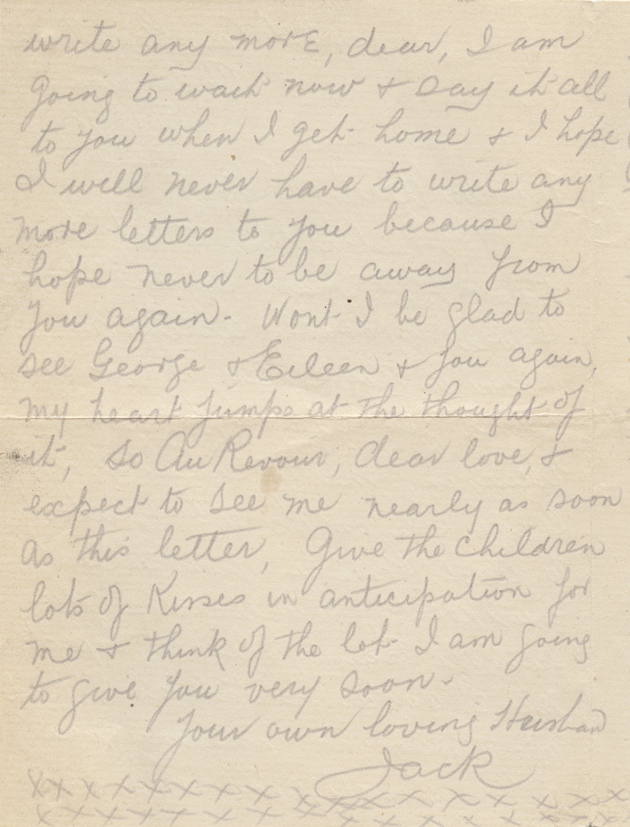 write any more, dear, I am
going to wait now & say it all
to you when I get home & I hope
I will never have to write any
more letters to you because I
hope never to be away from
you again. Wont I be glad to
see George & Eileen & you again,
my heart jumps at the thought of
it, so Au Revour, dear love, &
expect to see me nearly as soon
as this letter, Give the children
lots of Kisses in anticipation for
me & think of the lot I am going
to give you very soon.
Your own loving Husband
Jack
XXXXXXXXXXXXXXXXXXXX
XXXXXXXXXXXXXXXXXXXX